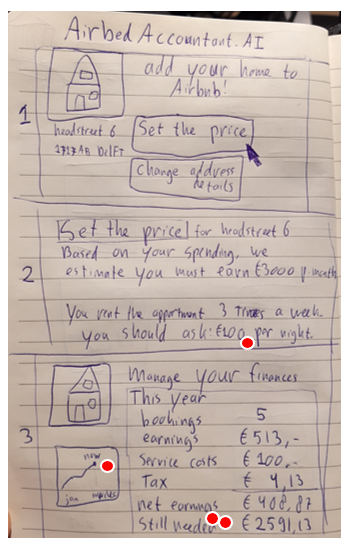 Airbed Accountant.AI
1
add your home to
Airbnb!
headstreet 6
1717AB Delft
Set the price
Change address
details
2
Set the price for headstreet 6
Based on your spending, we
estimate you must earn €3000 p. month
You rent the appartment 3 Times a week.
you should ask: €100 per night.
3
Manage your finances
This year
bookings 5
earnings €513,-
Service costs €100,-
Tax €4,13
net earnings €408,87
Still needed €2591,13
now
jan